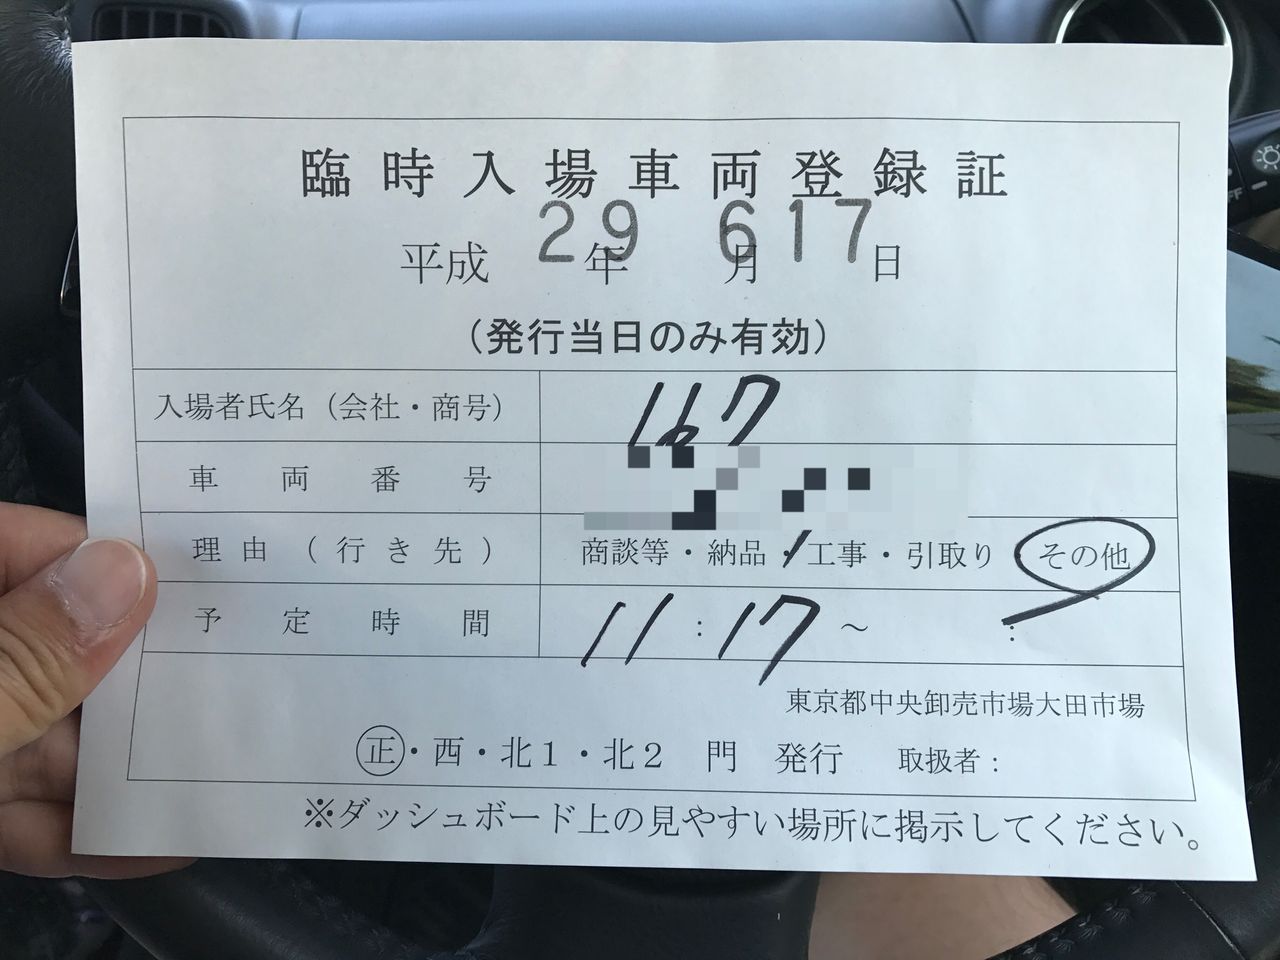 臨時入場車両登録証
平成 29年 6月17日
（発行当日のみ有効）
入場者氏名（会社・商号） 167
車両番号
理由（行き先） 商談等・納品・工事・引取り・その他
予定時間 11:17～ :
東京都中央卸売市場大田市場
正・西・北１・北２ 門 発行 取扱者：
※ダッシュボード上の見やすい場所に掲示してください。
OFF